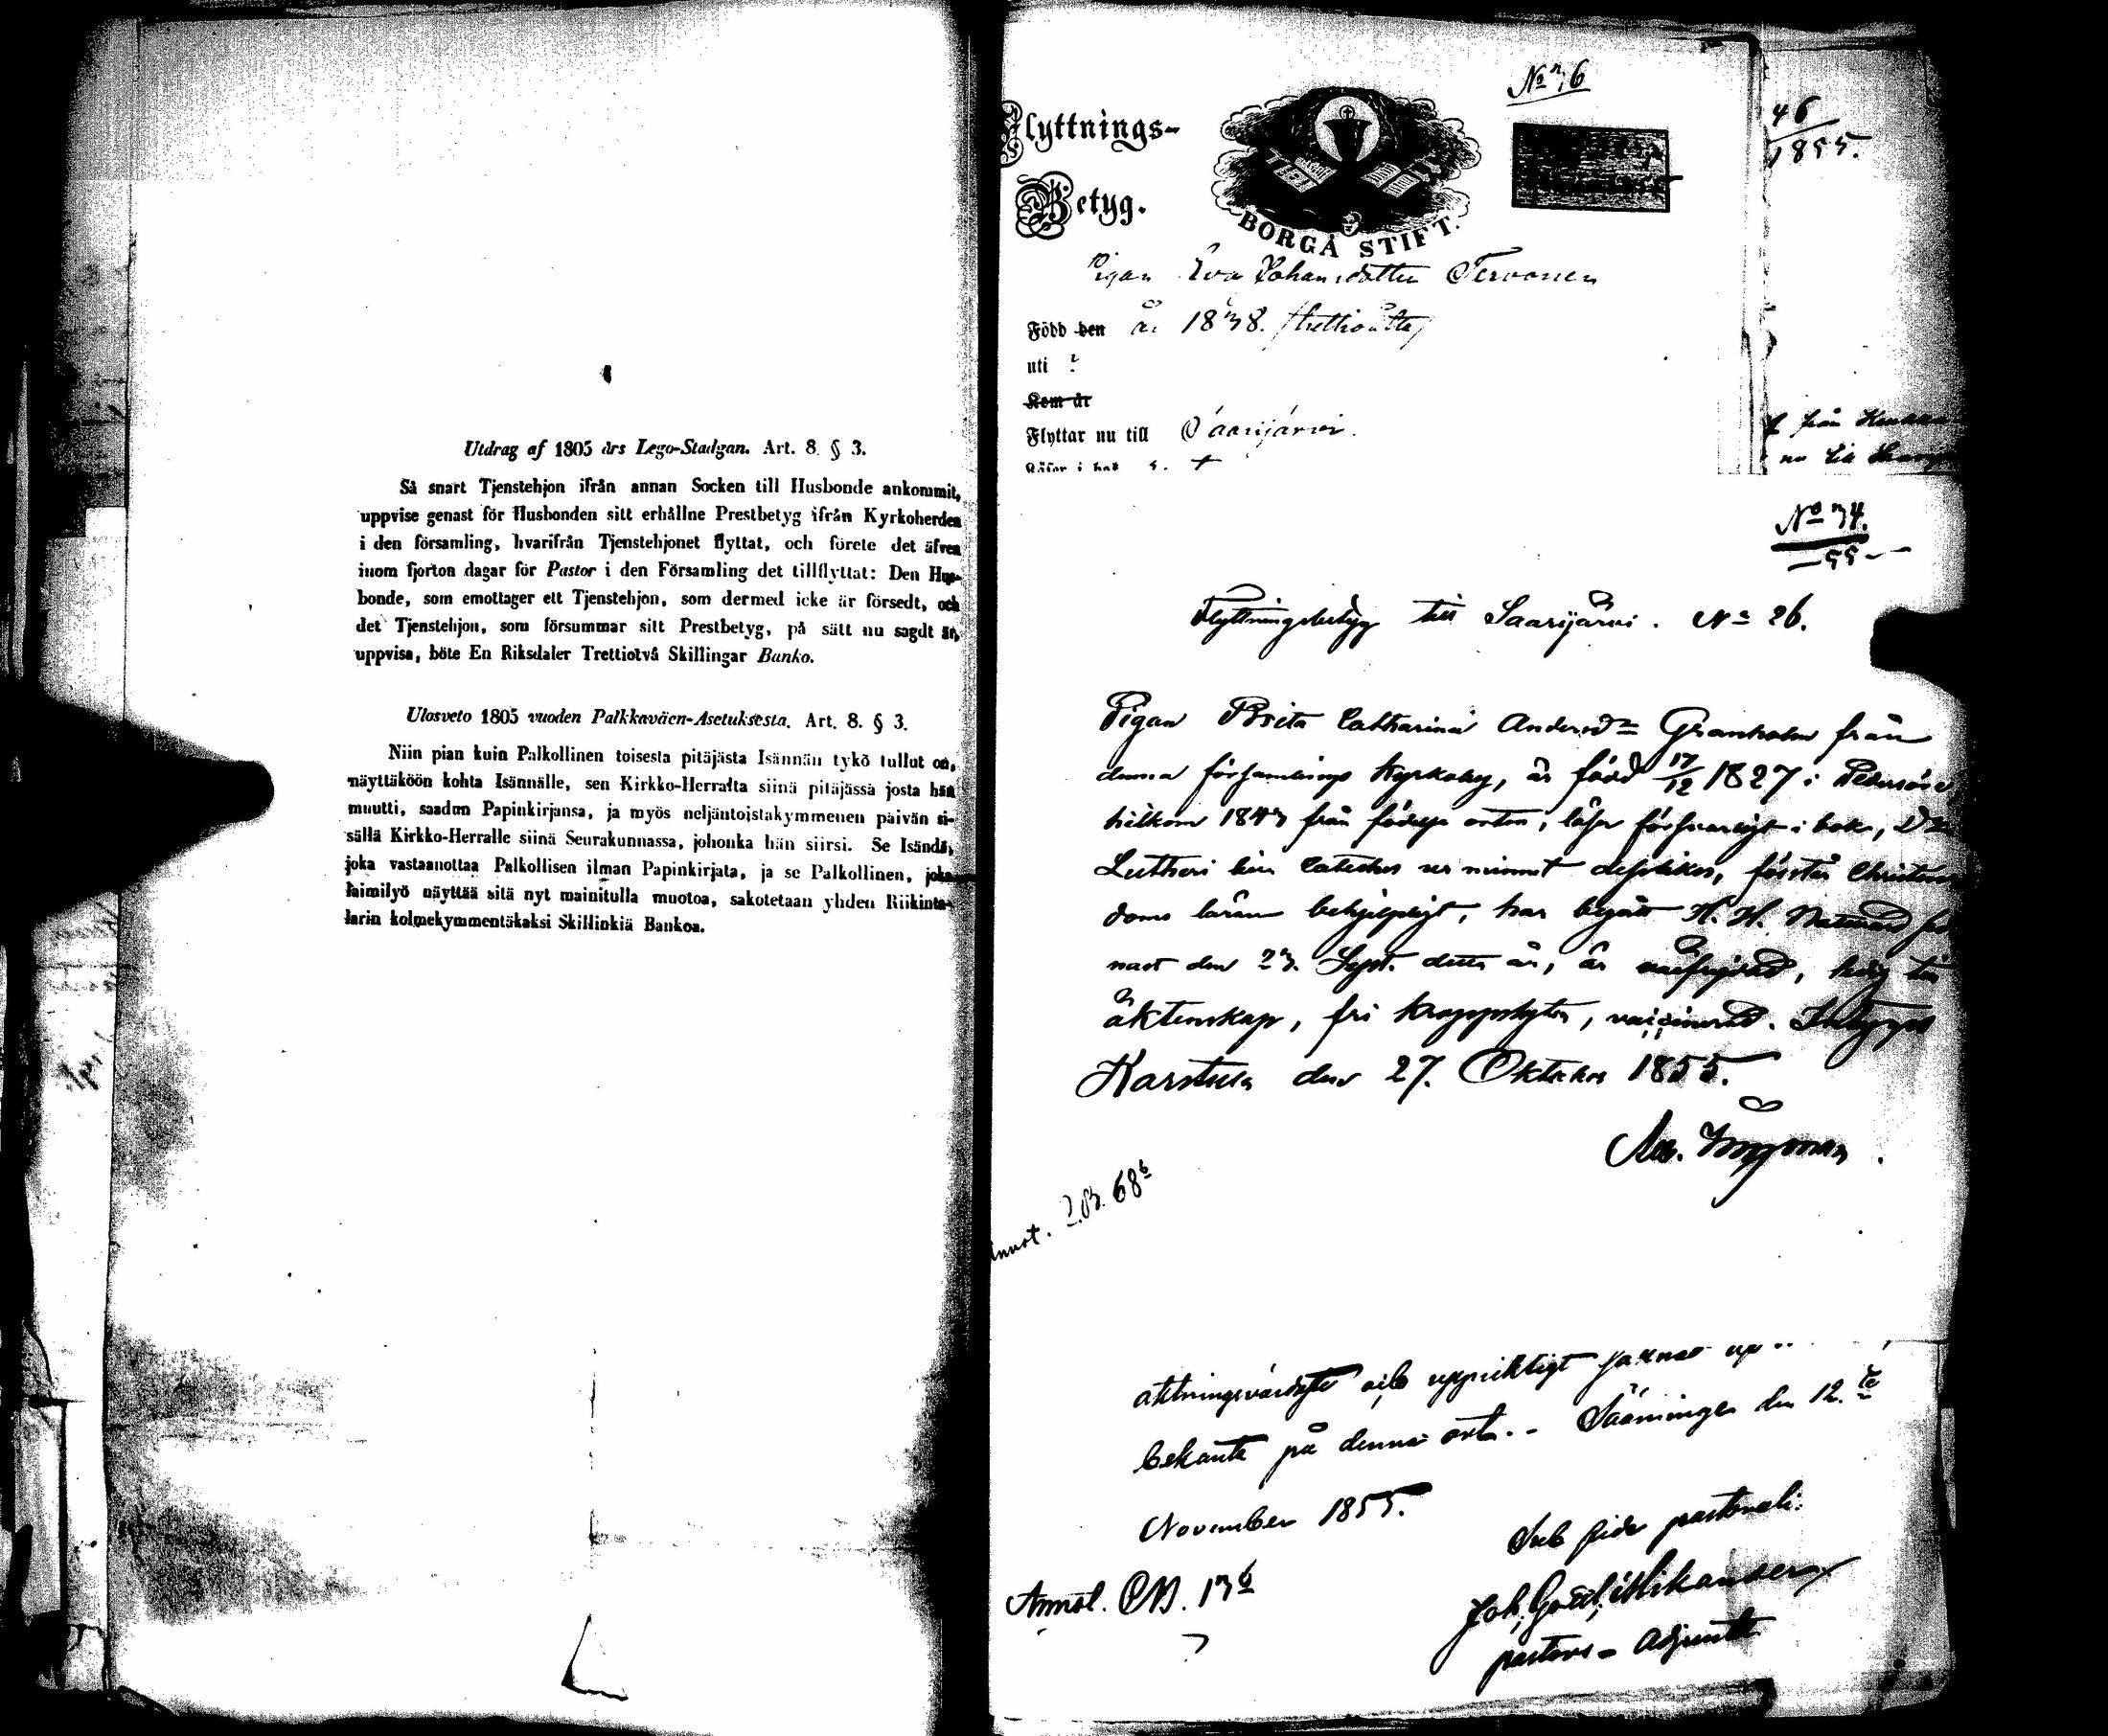 Utdrag af 1805 års Lego-Stadgan. Art. 8. § 3.
Så snart Tjenstehjon ifrån annan Socken till Husbonde ankommit,
uppvise genast för Husbonden sitt erhållne Prestbetyg ifrån Kyrkoherden
i den församling, hvarifrån Tjenstehjonet flyttat, och förete det äfven
inom fjorton dagar för Pastor i den Församling det tillflyttat: Den Hus-
bonde, som emottager ett Tjenstehjon, som dermed icke är försedt, och
det Tjenstehjon, som försummar sitt Prestbetyg, på sätt nu sagdt är,
uppvisa, böte En Riksdaler Trettiotvå Skillingar Banko.
Ulosveto 1805 vuoden Palkkaväen-Asetuksesta. Art. 8. § 3.
Niin pian kuin Palkollinen toisesta pitäjästä Isännän tykö tullut on,
näyttäköön kohta Isännälle, sen Kirkko-Herralta siinä pitäjässä josta hän
muutti, saadun Papinkirjansa, ja myös neljäntoistakymmenen päivän si-
sällä Kirkko-Herralle siinä Seurakunnassa, johonka hän siirsi. Se Isändä,
joka vastaanottaa Palkollisen ilman Papinkirjata, ja se Palkollinen, joka
laimilyö näyttää sitä nyt mainitulla muotoa, sakotetaan yhden Riikinta-
larin kolmekymmentäkaksi Skillinkiä Bankoa.
Flyttnings-
Betyg.
BORGÅ STIFT.
46
1855.
Pigan Eva Johansdotter Tervonen
Född den år 1838. /trettioåtta/
uti ?
Kom år
Flyttar nu till Saarijärvi.
från
nu till
No 34.
55
Flyttningsbetyg till Saarijärvi. No 26.
Pigan Brita Catharina Andersdr Granholm från
denna församlings Kyrkoby, är född 17/12 1827 i Pedersöre
hitkom 1843 från födelse orten, läser försvarligt i bok,
Lutheri lilla Cateches ur minnet, förstår Christen-
doms läran behjelpligt, har begått H. H. Nattvard
nast den 23. Sept. detta år, är välfrejdad, ledig till
äktenskap, fri kroppslyten, vaccinerad. Intygas
Karstula den 27. Oktober 1855.
Annot. 68
aktningsvärdaste och uppriktigt
bekante på denna ort. Sääminge den 12.te
November 1855.
Sub fide pastorali:
Annot. 13
pastors-Adjunkt